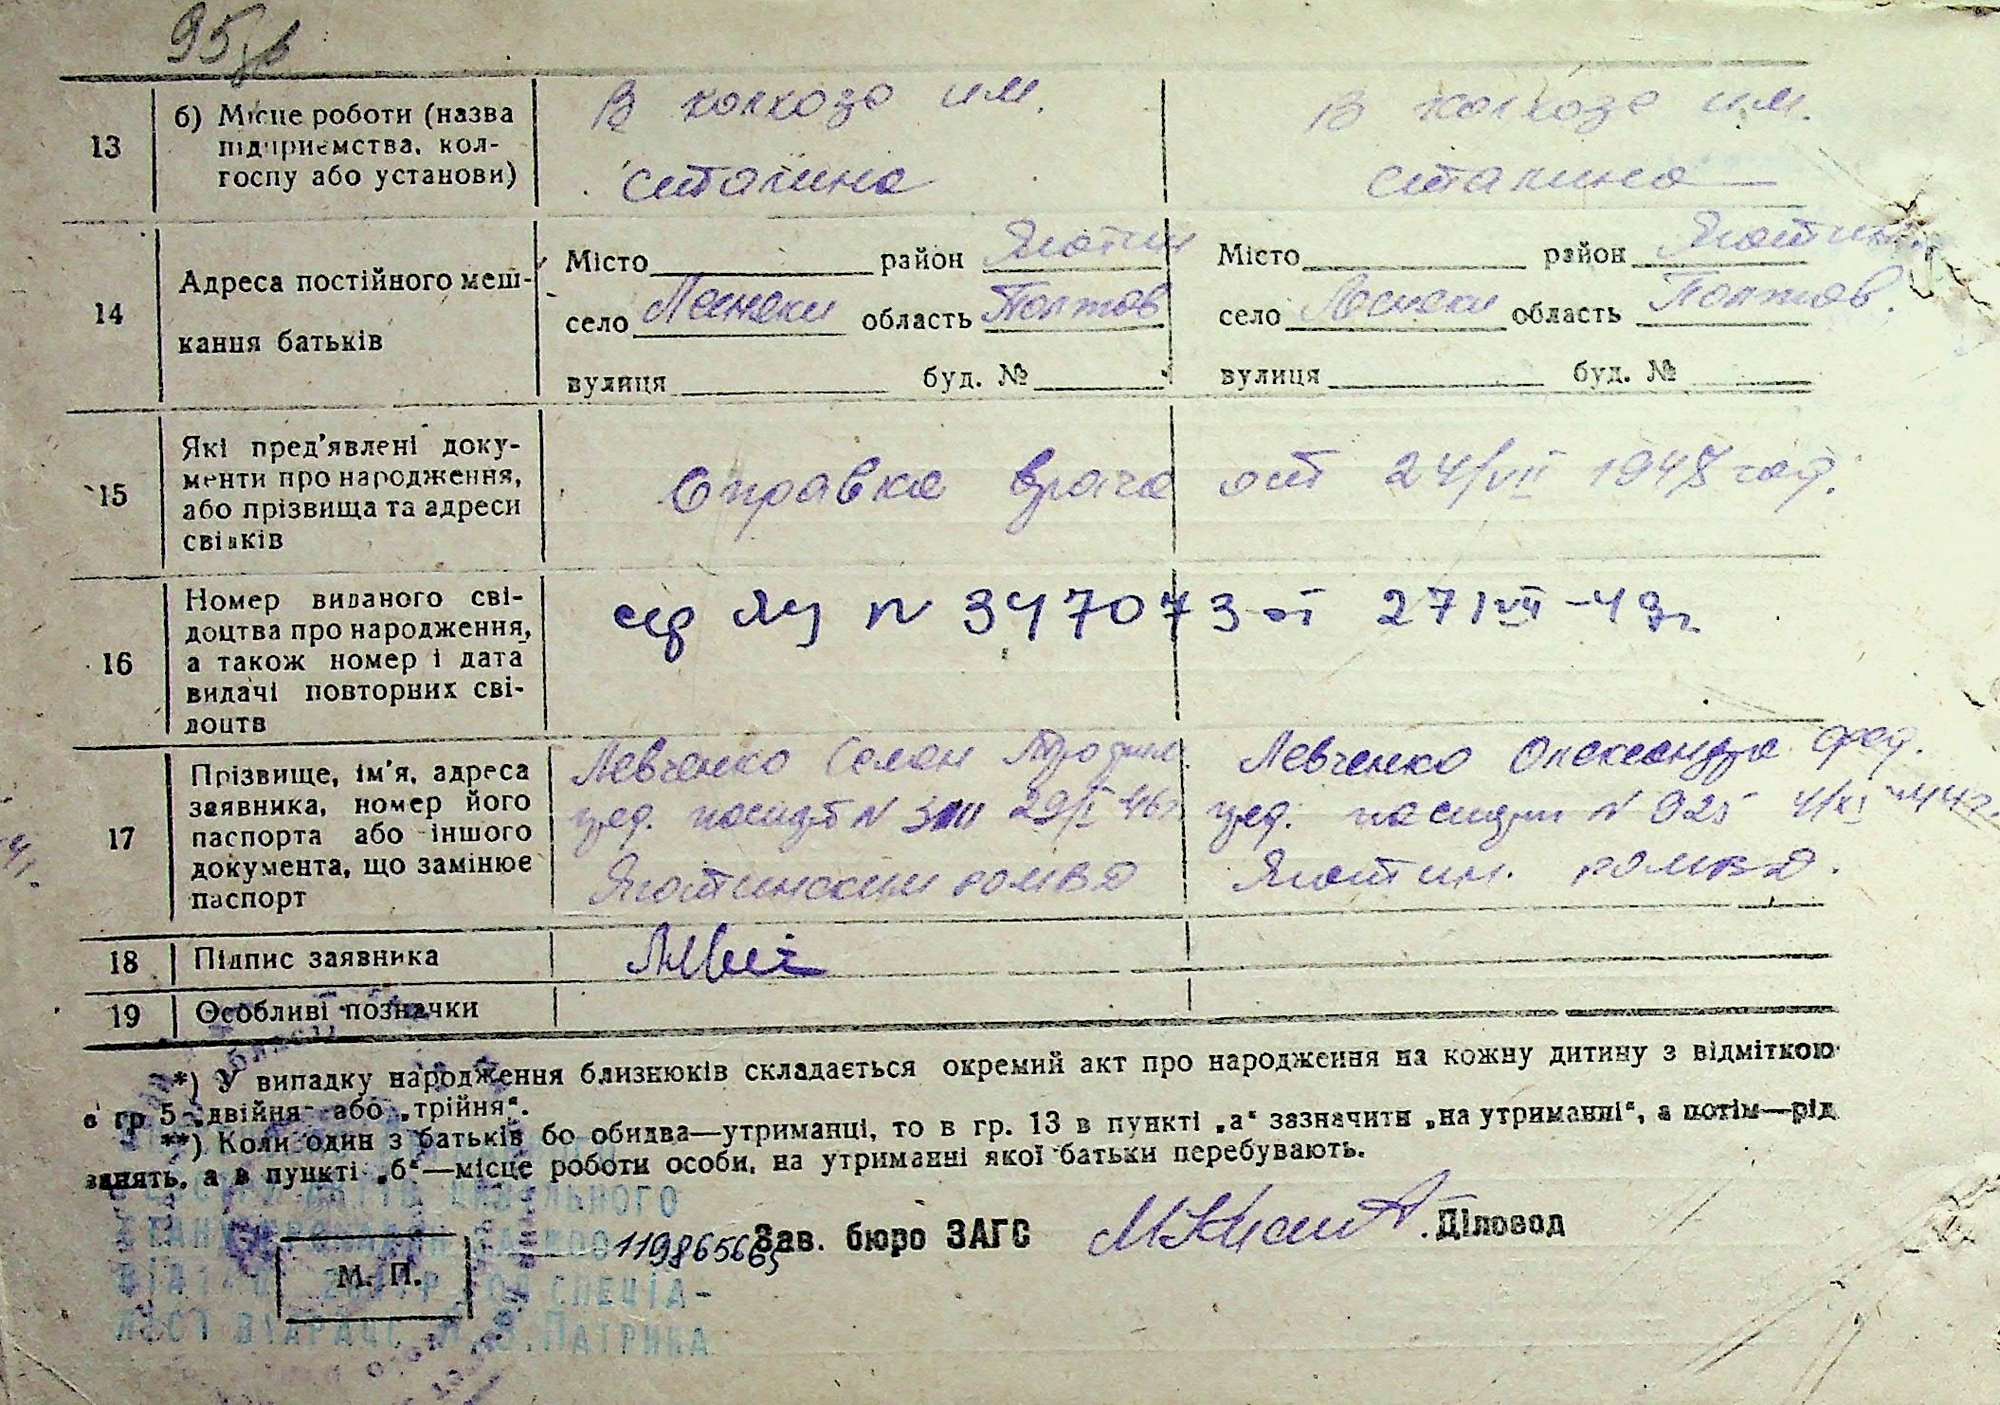 95
13
б) Місце роботи (назва
підприємства, кол-
госпу або установи)
В колхозе им.
Сталина
В колхозе им.
Сталина
14
Адреса постійного меш-
кання батьків
Місто район Яготин
село область Полтов
вулиця буд. №
Місто район Яготин
село область Полтов.
вулиця буд. №
15
Які пред’явлені доку-
менти про народження,
або прізвища та адреси
свідків
Справка врача от 24/VII 1948 год.
16
Номер виданого сві-
доцтва про народження,
а також номер і дата
видачі повторних сві-
доцтв
N 347073 от 27/VII-49г
17
Прізвище, ім’я, адреса
заявника, номер його
паспорта або іншого
документа, що замінює
паспорт
Левченко
паспорт N 29/I 46г
Яготинским РОМВД
Левченко Олександра
паспорт N 925 4/XI-44г.
Яготин. РОМВД.
18
Підпис заявника
19
Особливі позначки
*) У випадку народження близнюків складається окремий акт про народження на кожну дитину з відміткою
в гр 5 „двійня“ або „трійня“.
**) Коли один з батьків бо обидва—утриманці, то в гр. 13 в пункті „а“ зазначити „на утриманні“, а потім—рід
занять, а в пункті „б“—місце роботи особи, на утриманні якої батьки перебувають.
М. П.
119865665
Зав. бюро ЗАГС
Діловод